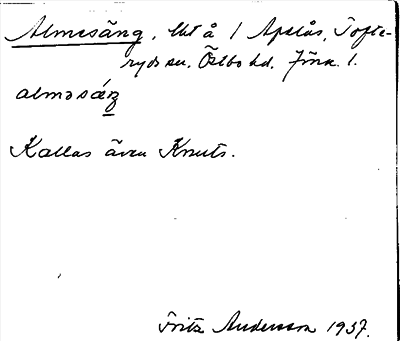 Almesäng, lht å 1 Apelås, Tofte-
ryds sn. Östbo hd. Jönk. l.
alməsáŋ
Kallas även Knuts.
Fritz Andersson 1937.